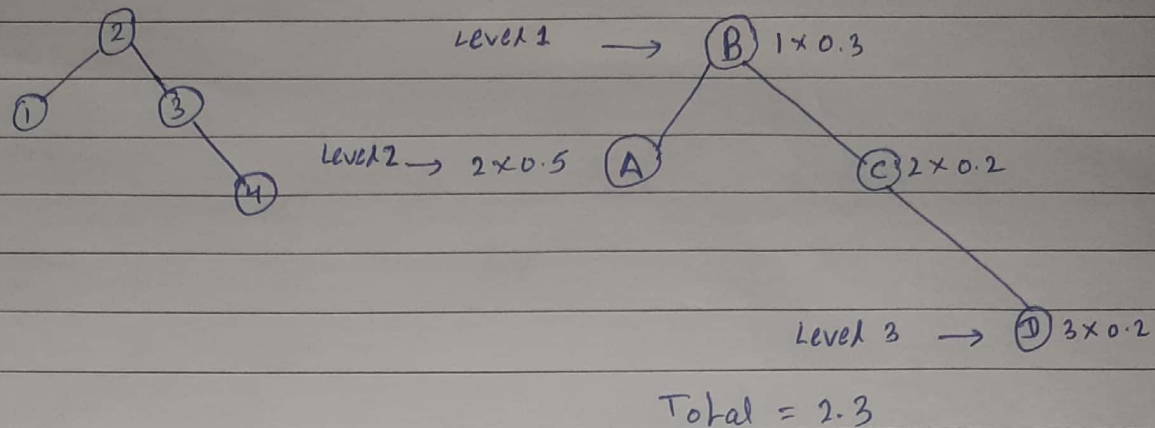 2
Level 1 → B 1 × 0.3
1 3
Level 2 → 2 × 0.5 A C 2 × 0.2
4
Level 3 → D 3 × 0.2
Total = 2.3